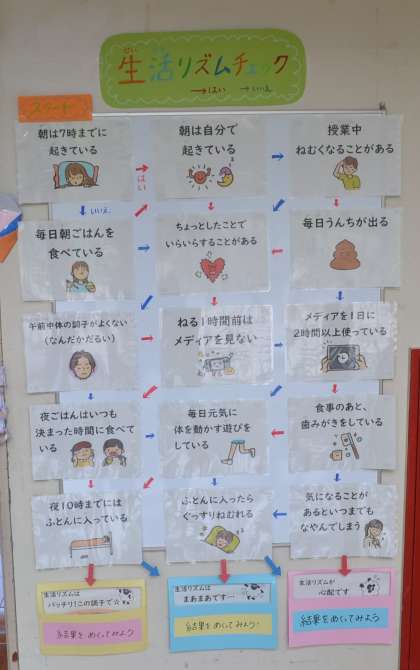 せい
生活リズムチェック
→はい →いいえ
スタート
朝は7時までに
起きている
はい
いいえ
朝は自分で
起きている
授業中
ねむくなることがある
毎日朝ごはんを
食べている
ちょっとしたことで
いらいらすることがある
毎日うんちが出る
午前中体の調子がよくない
(なんだかだるい)
ねる1時間前は
メディアを見ない
メディアを1日に
2時間以上使っている
夜ごはんはいつも
決まった時間に食べて
いる
毎日元気に
体を動かす遊びを
している
食事のあと、
歯みがきをしている
夜10時までには
ふとんに入っている
ふとんに入ったら
ぐっすりねむれる
気になることが
あるといつまでも
なやんでしまう
生活リズムは
バッチリ!この調子で☆
結果をめくってみよう
生活リズムは
まあまあです…
結果をめくってみよう
生活リズムが
心配です
結果をめくってみよう